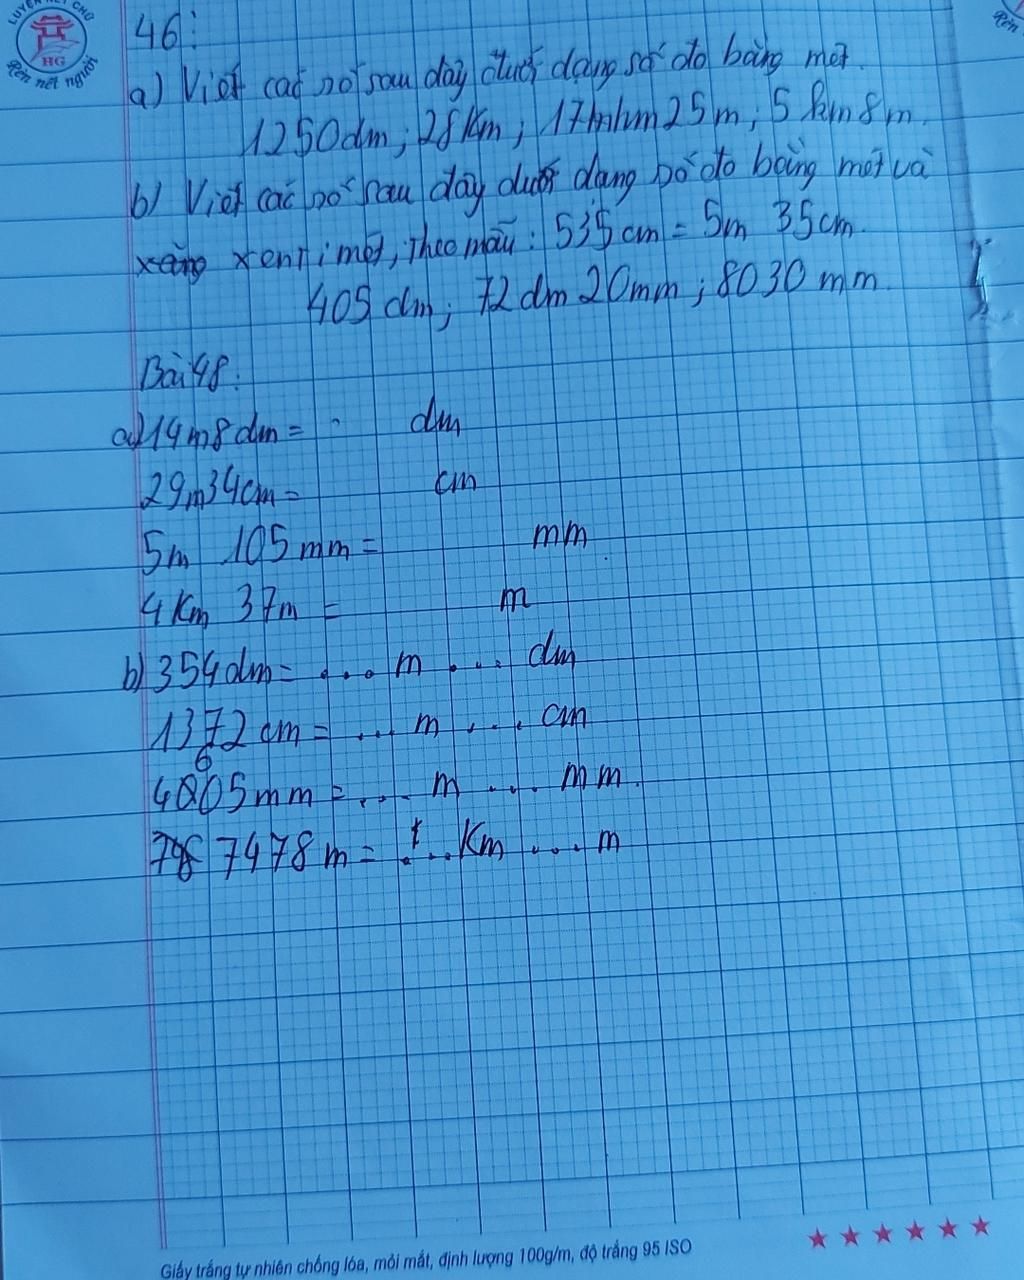 LUYỆN NÉT CHỮ
HG
Rèn nết người
Rèn
46:
a) Viết các số sau đây dưới dạng số đo bằng mét.
1250dm; 28Km; 17hm25m; 5km8m.
b) Viết các số sau đây dưới dạng số đo bằng mét và
xenTimét, Theo mẫu: 535cm = 5m 35cm.
405 dm; 72dm 20mm; 8030mm.
Bài 48:
a) 14m8dm = dm
29m34cm = cm
5m 105mm = mm
4Km 37m = m
b) 354dm = ... m ... dm
1372cm = ... m ... cm
4605mm = ... m ... mm
7478m = ... Km ... m
Giấy trắng tự nhiên chống lóa, mỏi mắt, định lượng 100g/m, độ trắng 95 ISO